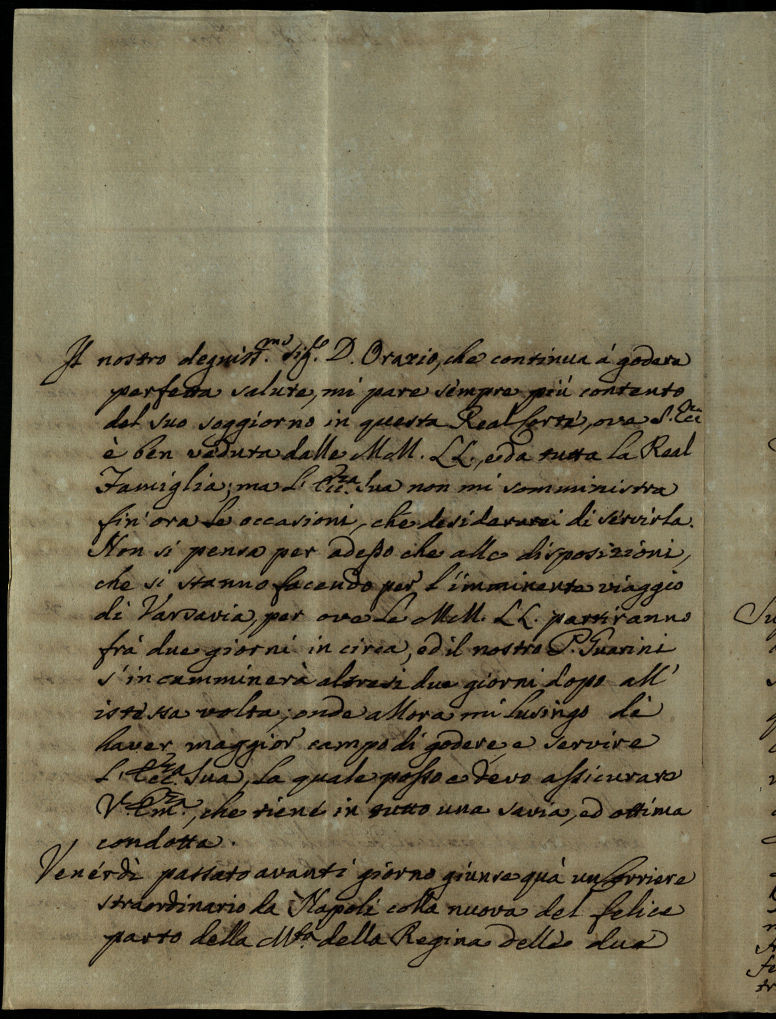 Il nostro degniss.mo Sig.e D. Orazio, che continua á godere
perfetta salute, mi pare sempre piú contento
del suo soggiorno in questa Real Corte, ove S. Ecc
è ben veduta dalle MM. LL., e da tutta la Real
Famiglia; ma l'Ecc.za Sua non mi somministra
fin'ora le occasioni, che desidererei di servirla.
Non si pensa per adesso che alle disposizioni,
che si stanno facendo per l'imminente viaggio
di Varsavia, per ove le MM. LL. partiranno
frá due giorni in circa, ed il nostro P. Guarini
s'incamminerà altresi due giorni dopo all'
istessa volta; onde allora mi lusingo di
haver maggior campo di godere e servire
l'Ecc.za Sua, la quale posso e devo assicurare
V. Em.za, che tiene in tutto una savia, ed ottima
condotta.
Venérdì passato avanti giorno giunse quà un Corriere
straordinario da Napoli colla nuova del felice
parto della M.tà della Regina delle due